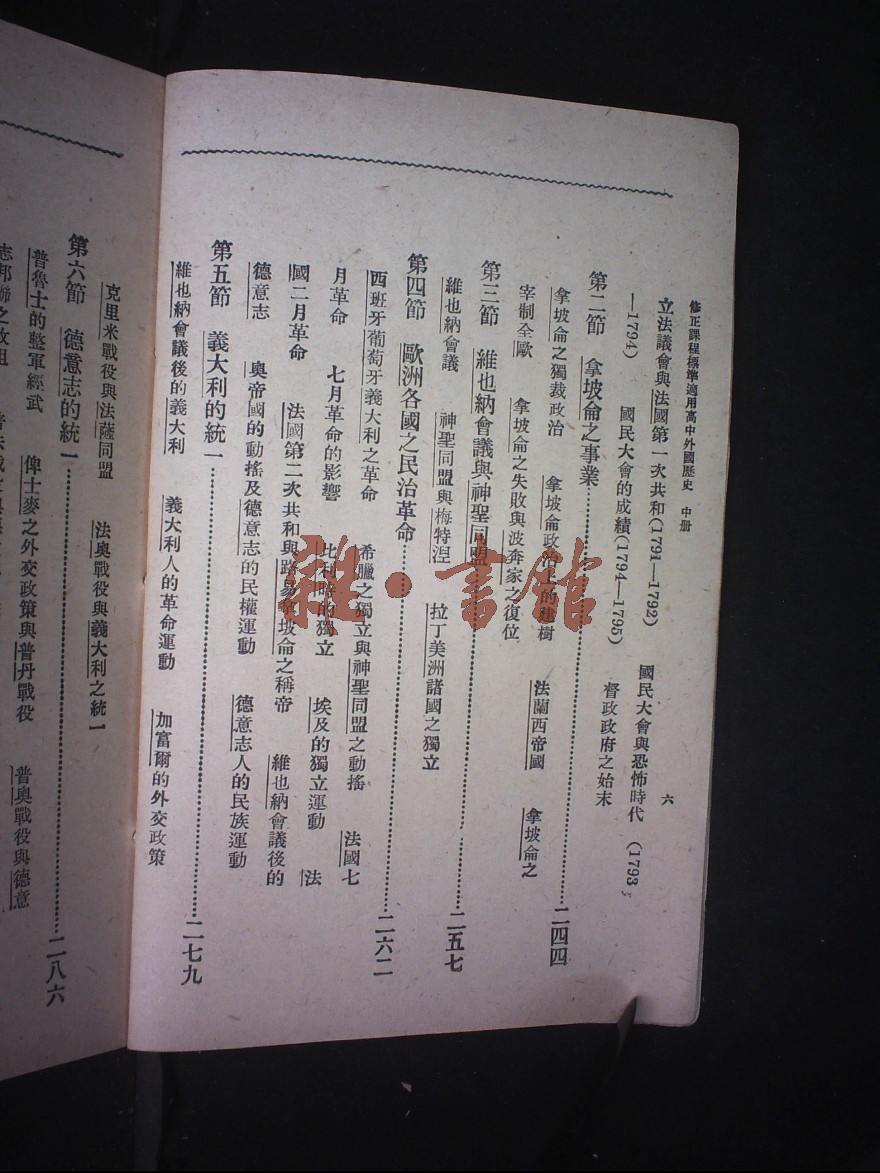 修正課程標準適用高中外國歷史 中册 六
立法議會與法國第一次共和(1791—1792) 國民大會與恐怖時代 (1793
—1794) 國民大會的成績(1794—1795) 督政政府之始末
第二節 拿坡侖之事業……二四四
拿坡侖之獨裁政治 拿坡侖政治上的建樹 法蘭西帝國 拿坡侖之
宰制全歐 拿坡侖之失敗與波奔家之復位
第三節 維也納會議與神聖同盟……二五七
維也納會議 神聖同盟與梅特涅 拉丁美洲諸國之獨立
第四節 歐洲各國之民治革命……二六二
西班牙葡萄牙義大利之革命 希臘之獨立與神聖同盟之動搖 法國七
月革命 七月革命的影響 比利時的獨立 埃及的獨立運動 法
國二月革命 法國第二次共和與路易拿坡侖之稱帝 維也納會議後的
德意志 奧帝國的動搖及德意志的民權運動 德意志人的民族運動
第五節 義大利的統一……二七九
維也納會議後的義大利 義大利人的革命運動 加富爾的外交政策
克里米戰役與法薩同盟 法奧戰役與義大利之統一
第六節 德意志的統一……二八六
普魯士的整軍經武 俾士麥之外交政策與普丹戰役 普奧戰役與德意
志邦聯之改組
雜·書館